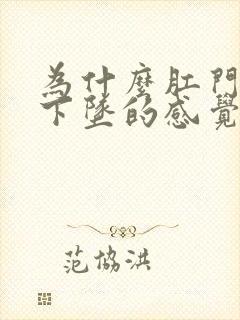 為什麼肛門
下墜的感覺
范協洪